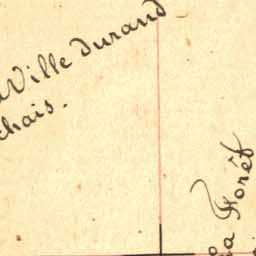 Ville durand
chais.
la Forêt